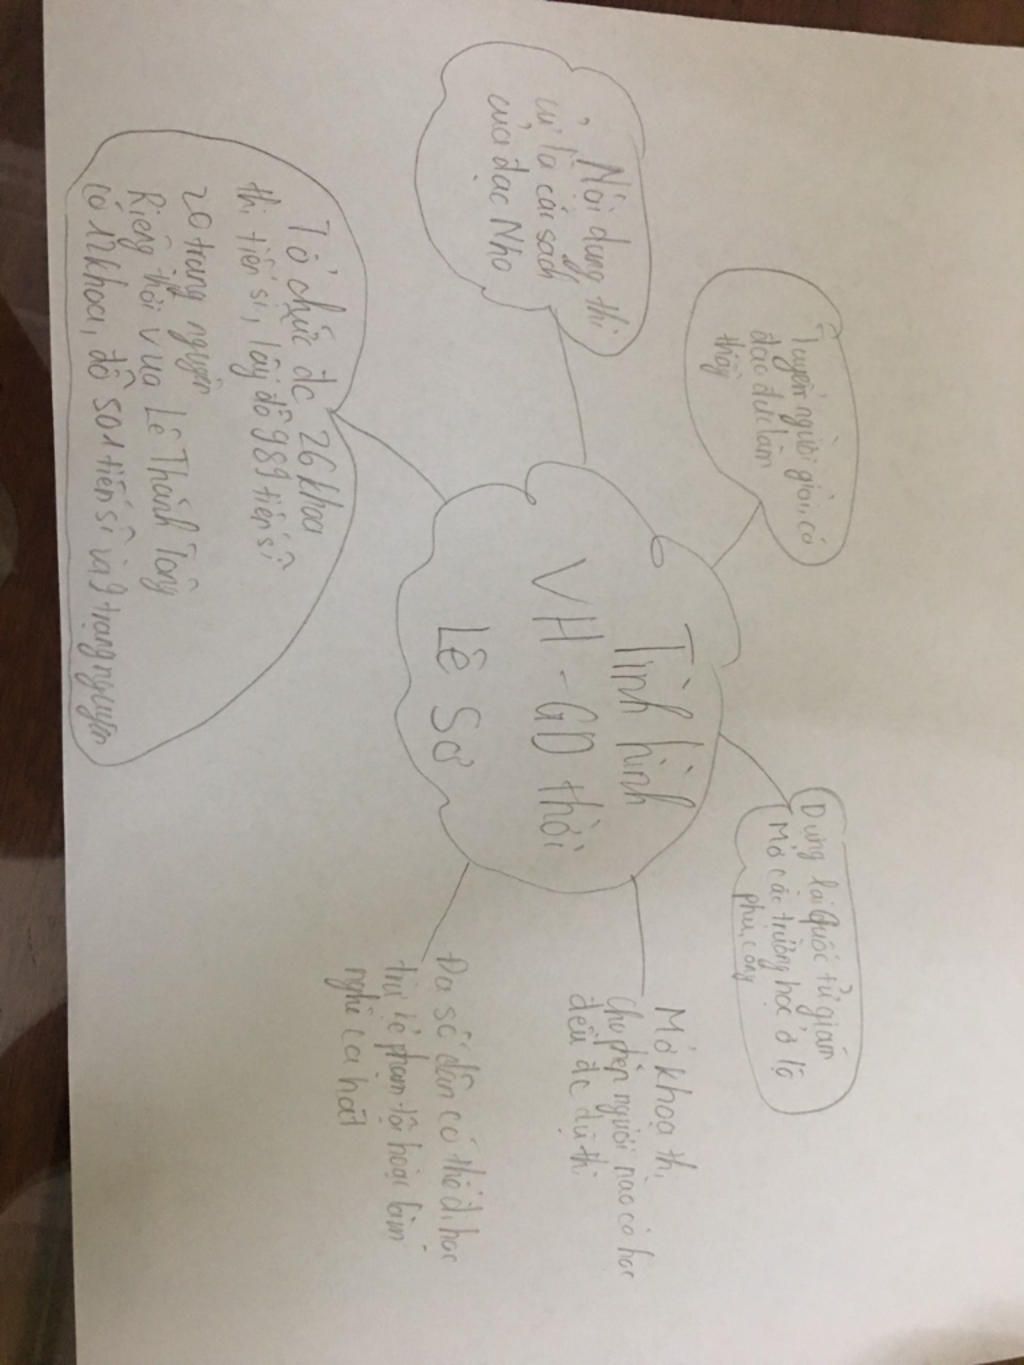 Tình hình
VH - GD thời
Lê Sơ
Tuyển người giỏi, có
đạo đức làm
thầy
Dựng lại Quốc tử giám
Mở các trường học ở lộ
phủ, công
Nội dung thi
cử là các sách
của đạo Nho
Mở khoa thi
cho phép người nào có học
đều đc dự thi
Tổ chức đc 26 khoa
thi tiến sĩ, lấy đỗ 989 tiến sĩ
20 trạng nguyên
Riêng thời vua Lê Thánh Tông
có 12 khoa, đỗ 501 tiến sĩ và 9 trạng nguyên
Đa số dân có thể đi học
trừ kẻ phạm tội hoặc làm
nghề ca hát